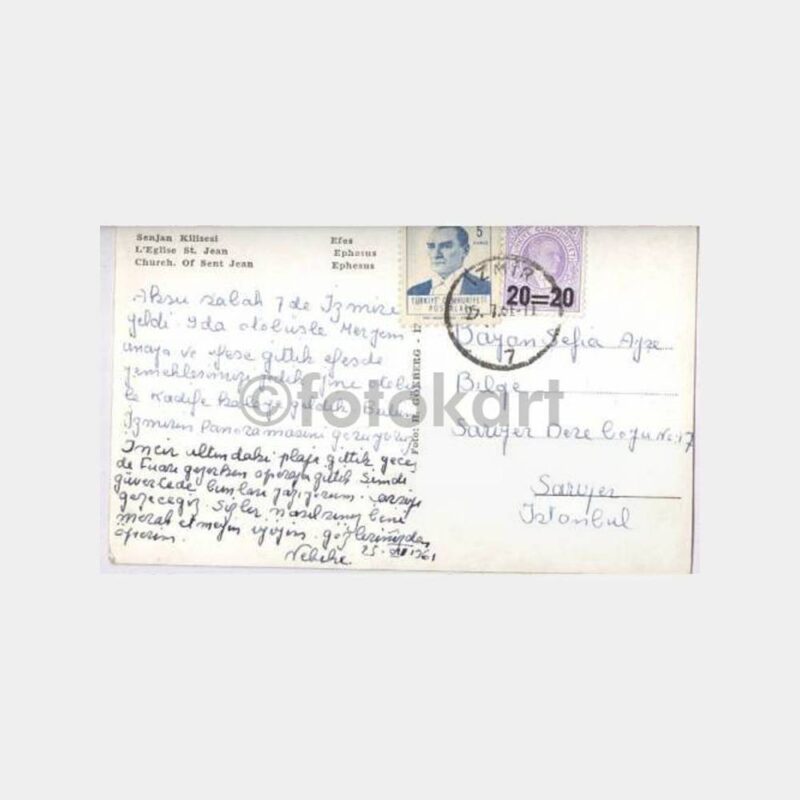 Senjan Kilisesi
L'Eglise St. Jean
Church. Of Sent Jean
Efes
Ephosus
Ephesus
5
KURUŞ
TÜRKİYE CUMHURİYETİ
POSTALARI
20=20
İZMİR
7
Foto: H. GÖKBERG - İZ
sabah 7 de İzmire
geldi 9da otobüsle Meryem
anaya ve efese gittik efesde
yemeklerimizi yedik yine otobüs
le Kadife kaleye geldik
İzmirin Panoramasını
İncir altındaki plaja gittik gece
de Fuarı gezerken operaya gittik Şimdi
güvertede bunları yazıyorum
gezeceğiz nasılsınız beni
merak etmeyin iyiyim gözlerinizden
öperim.
25. 1961
Bayan Sefia Ayşe
Bilge
Sarıyer Dere boyu No: 17
Sarıyer
İstanbul
©fotokart